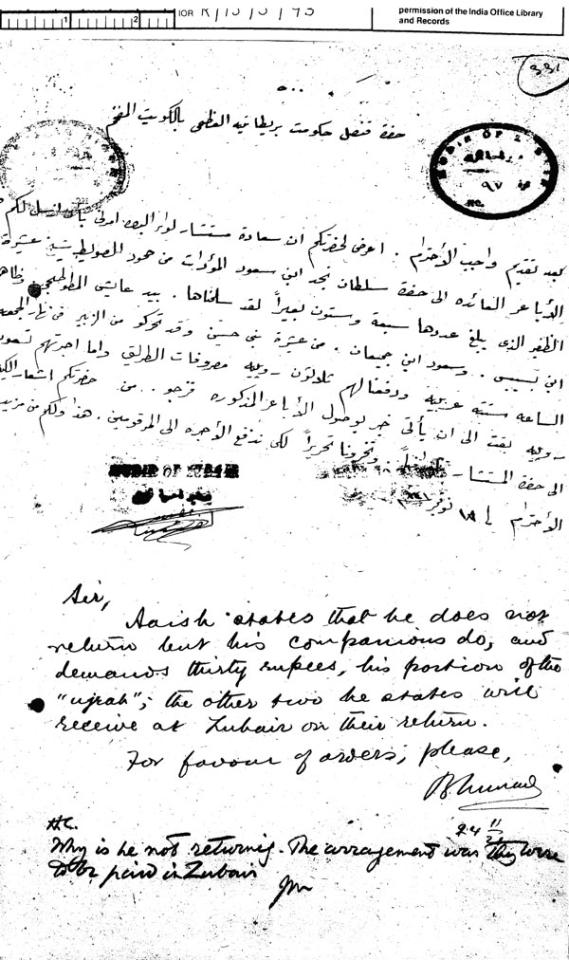 IOR R/15/5/95
permission of the India Office Library
and Records
331
حضرة قنصل حكومت بريطانيه العظمى بالكويت المفخم
MUDIR OF
٩٧
NO.
بعد تقديم واجب الأحترام . اعرض لحضرتكم ان سعادة مستشار لواء البصره امرني بأن ارسل لكم
الأباعر العائده الى حضرة سلطان نجد ابن سعود المؤدات من حمود الصويط شيخ عشيرة
الظفير الذى يبلغ عددها سبعة وستون بعيراً لقد سلمناها . بيد عايش المطوطحي
ابن . وسعود ابن جميعان . من عشيرة بني حسين وقد تحركو من الزبير في نهار الجمعه
الساعه ستة عربيه ودفعنا لهم ثلاثون روبيه مصروفات الطريق واما اجرتهم تسعون
روبيه بقت الى ان يأتى خبر بوصول الأباعر المذكوره نرجو . من حضرتكم اشعار
الى حضرة المستشار وتخبرونا تحريراً لكي ندفع الأجره الى المرقومين . هذا ولكم من مزيد
الأحترام في ١٨ نوفمبر
MUDIR OF ZUBAIR
Sir,
Aaish states that he does not
return but his companions do, and
demands thirty rupees, his portion of the
"ujrah"; the other two he states will
receive at Zubair on their return.
For favour of orders, please,
24 11
H.C.
Why is he not returning. The arragement was they were
to be paid in Zubair